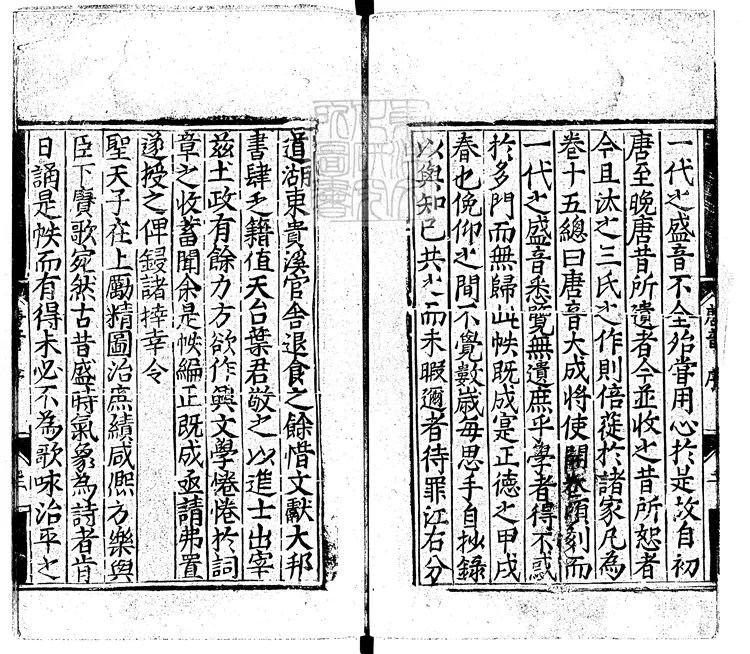 一代之盛音不全殆嘗用心於是故自初
唐至晚唐昔所遺者今並收之昔所恕者
今且汰之三氏之作則倍蓰於諸家凡為
卷十五總曰唐音大成將使開卷頃刻而
一代之盛音悉覽無遺庶乎學者得不惑
於多門而無歸此帙既成寔正德之甲戌
春也俛仰之間不覺數歲每思手自抄錄
以與知己共之而未暇邇者待罪江右分
道湖東貴溪官舍退食之餘惜文獻大邦
書肆乏籍值天台葉君敬之以進士出宰
茲土政有餘力方欲作興文學惓惓於詞
章之收蓄聞余是帙編正既成亟請弗置
遂授之俾鋟諸捧幸今
聖天子在上勵精圖治庶績咸熙方樂與
臣下賡歌宛然古昔盛時氣象為詩者肯
日誦是帙而有得未必不為歌咏治平之